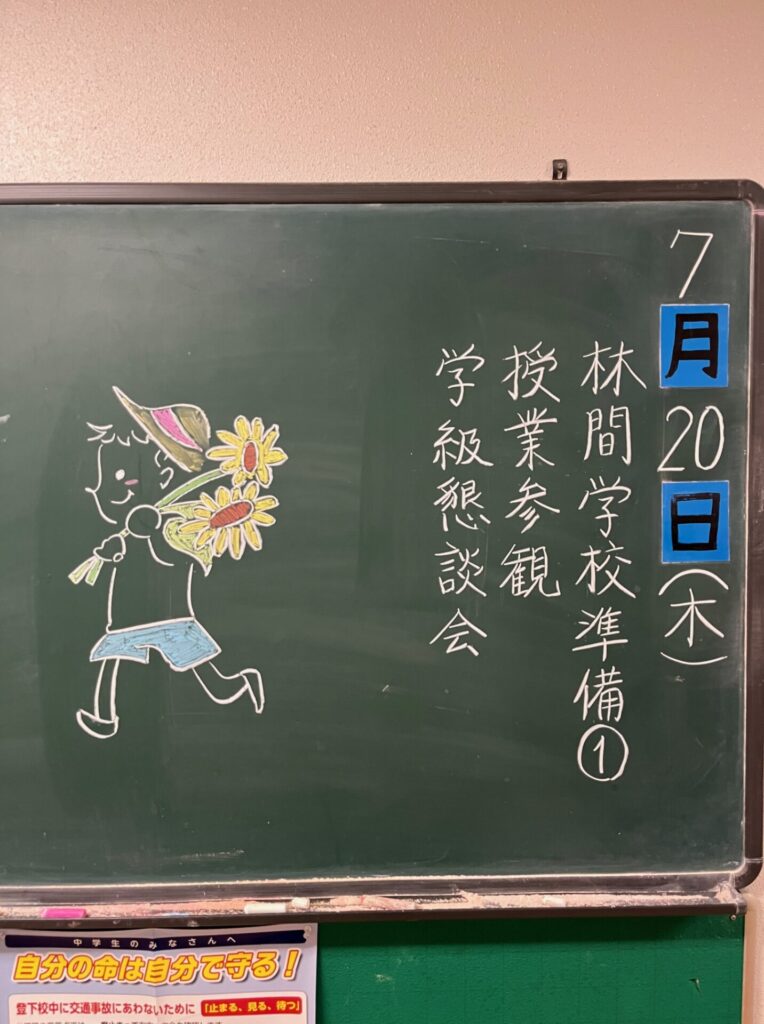 7月20日(木)
林間学校準備①
授業参観
学級懇談会
中学生のみなさんへ
自分の命は自分で守る!
登下校中に交通事故にあわないために「止まる、見る、待つ」